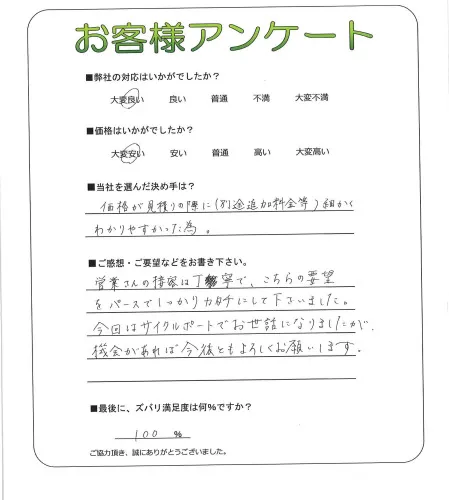 お客様アンケート
■弊社の対応はいかがでしたか？
大変良い 良い 普通 不満 大変不満
■価格はいかがでしたか？
大変安い 安い 普通 高い 大変高い
■当社を選んだ決め手は？
価格が見積りの際に(別途追加料金等)細かく
わかりやすかった為。
■ご感想・ご要望などをお書き下さい。
営業さんの接客は丁寧で、こちらの要望
をパースでしっかりカタチにして下さいました。
今回はサイクルポートでお世話になりましたが、
機会があれば今後ともよろしくお願いします。
■最後に、ズバリ満足度は何％ですか？
100 ％
ご協力頂き、誠にありがとうございました。